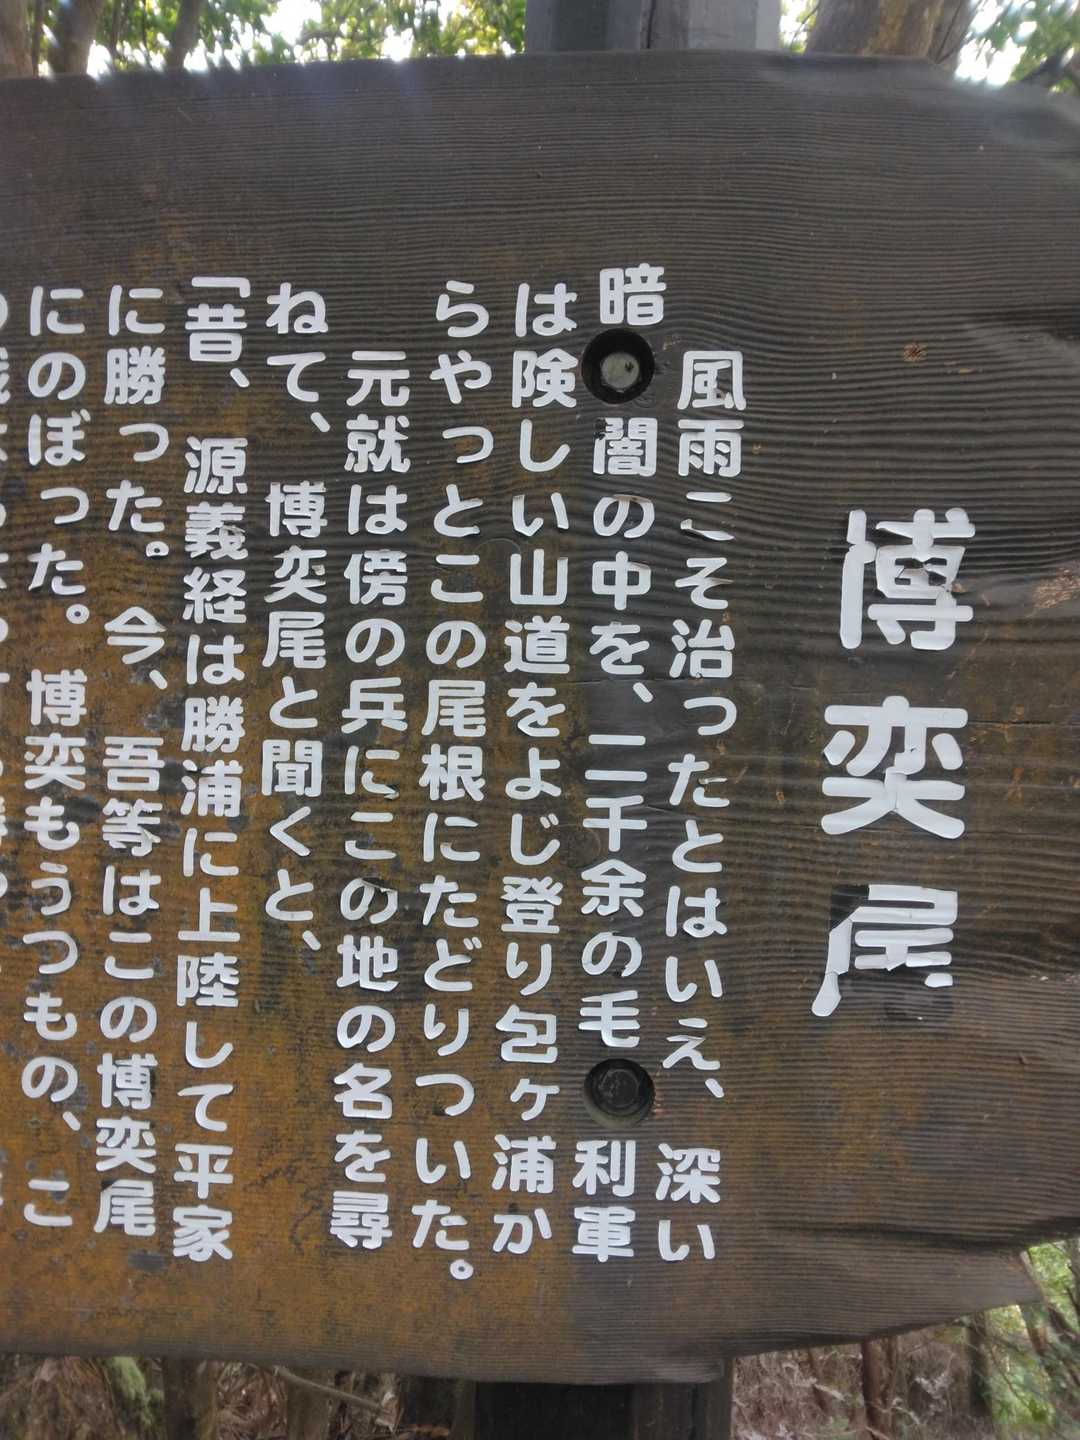 博奕尾
風雨こそ治ったとはいえ、深い
暗闇の中を、二千余の毛利軍
は険しい山道をよじ登り包ヶ浦か
らやっとこの尾根にたどりついた。
元就は傍の兵にこの地の名を尋
ねて、博奕尾と聞くと、
「昔、源義経は勝浦に上陸して平家
に勝った。今、吾等はこの博奕尾
にのぼった。博奕もうつもの、こ